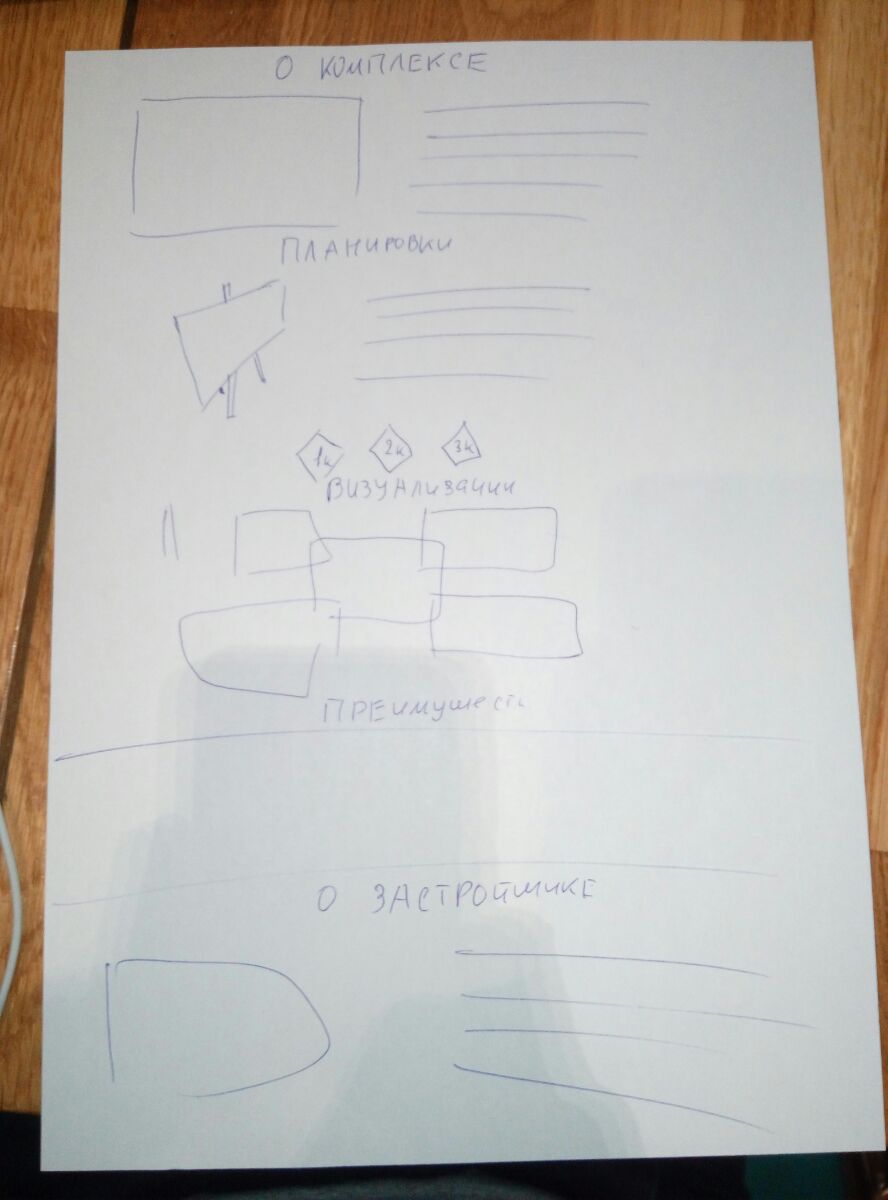 О КОМПЛЕКСЕ
ПЛАНИРОВКИ
1к 2к 3к
ВИЗУАЛИЗАЦИИ
ПРЕИМУЩЕСТ
О ЗАСТРОЙЩИКЕ